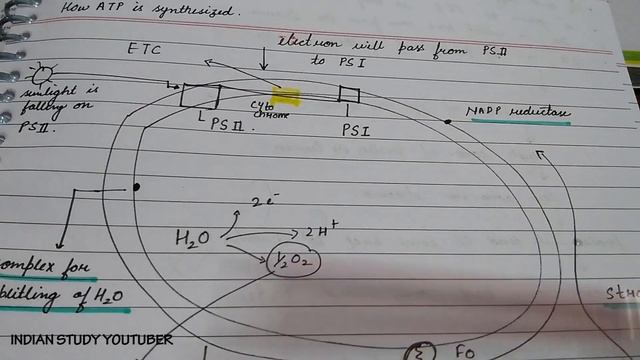 How ATP is synthesized.
ETC
electron will pass from PSII
to PSI
sunlight is
falling on
PSII.
Cyto
chrome
PSII.
PSI
NADP reductase
2e⁻
H₂O
2H⁺
½O₂
omplex for
plitting of H₂O
Str
F0
INDIAN STUDY YOUTUBER